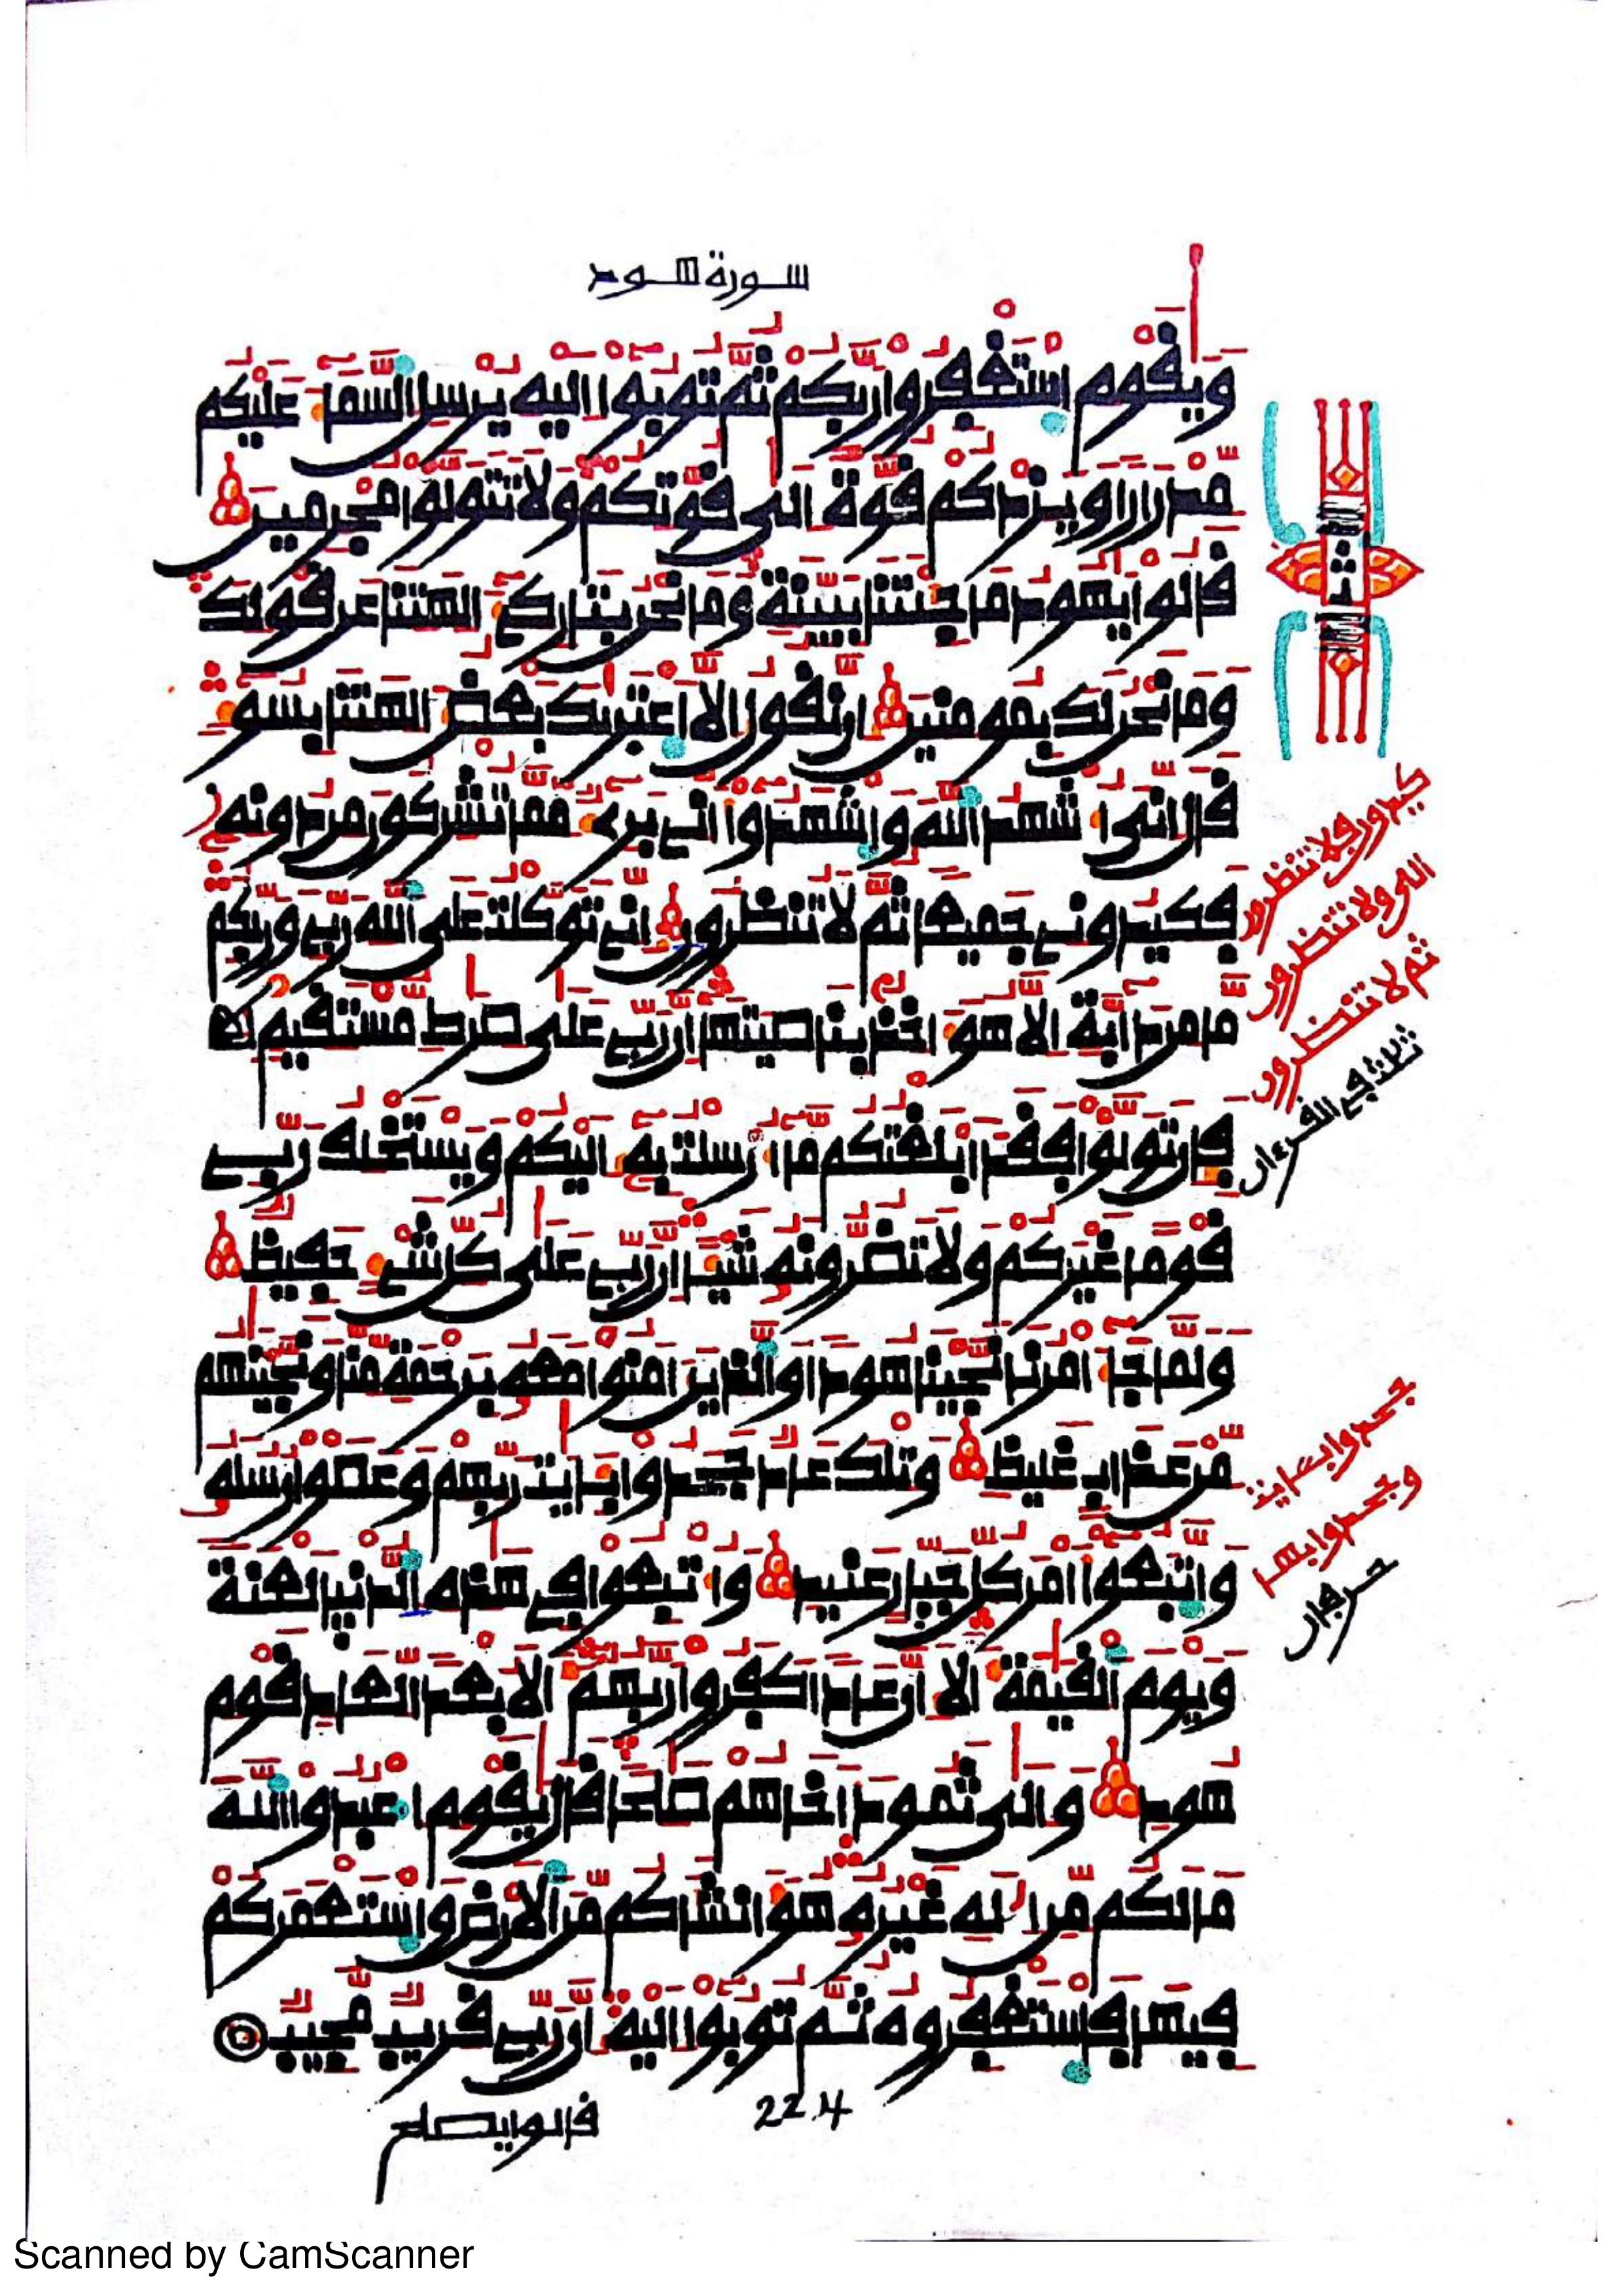 سورة هود
ويقوم استغفروا ربكم ثم توبوا اليه يرسل السما عليكم
مدرارا ويزدكم قوة الى قوتكم ولا تتولوا مجرمين
قالوا يهود ما جئتنا ببينة وما نحن بتاركي الهتنا عن قولك
وما نحن لك بمومنين ان نقول الا اعتريك بعض الهتنا بسو
قال اني اشهد الله واشهدوا اني بري مما تشركون من دونه
فكيدوني جميعا ثم لا تنظرون اني توكلت على الله ربي وربكم
ما من دابة الا هو اخذ بناصيتها ان ربي على صرط مستقيم
فان تولوا فقد ابلغتكم ما ارسلت به اليكم ويستخلف ربي
قوما غيركم ولا تضرونه شيا ان ربي على كل شي حفيظ
ولما جا امرنا نجينا هودا والذين امنوا معه برحمة منا ونجينهم
من عذاب غليظ وتلك عاد جحدوا بايت ربهم وعصوا رسله
واتبعوا امر كل جبار عنيد واتبعوا في هذه الدنيا لعنة
ويوم القيمة الا ان عادا كفروا ربهم الا بعدا لعاد قوم
هود والى ثمود اخاهم صلحا قال يقوم اعبدوا الله
ما لكم من اله غيره هو انشاكم من الارض واستعمركم
فيها فاستغفروه ثم توبوا اليه ان ربي قريب مجيب
قالوا يصلح
224
ثلث
كيدون فلا تنظرون
الي ولا تنظرون
ثم لا تنظرون
ثلاث في القرءان
جحدوا بءايت
وجحدوا بها
حرفان
Scanned by CamScanner